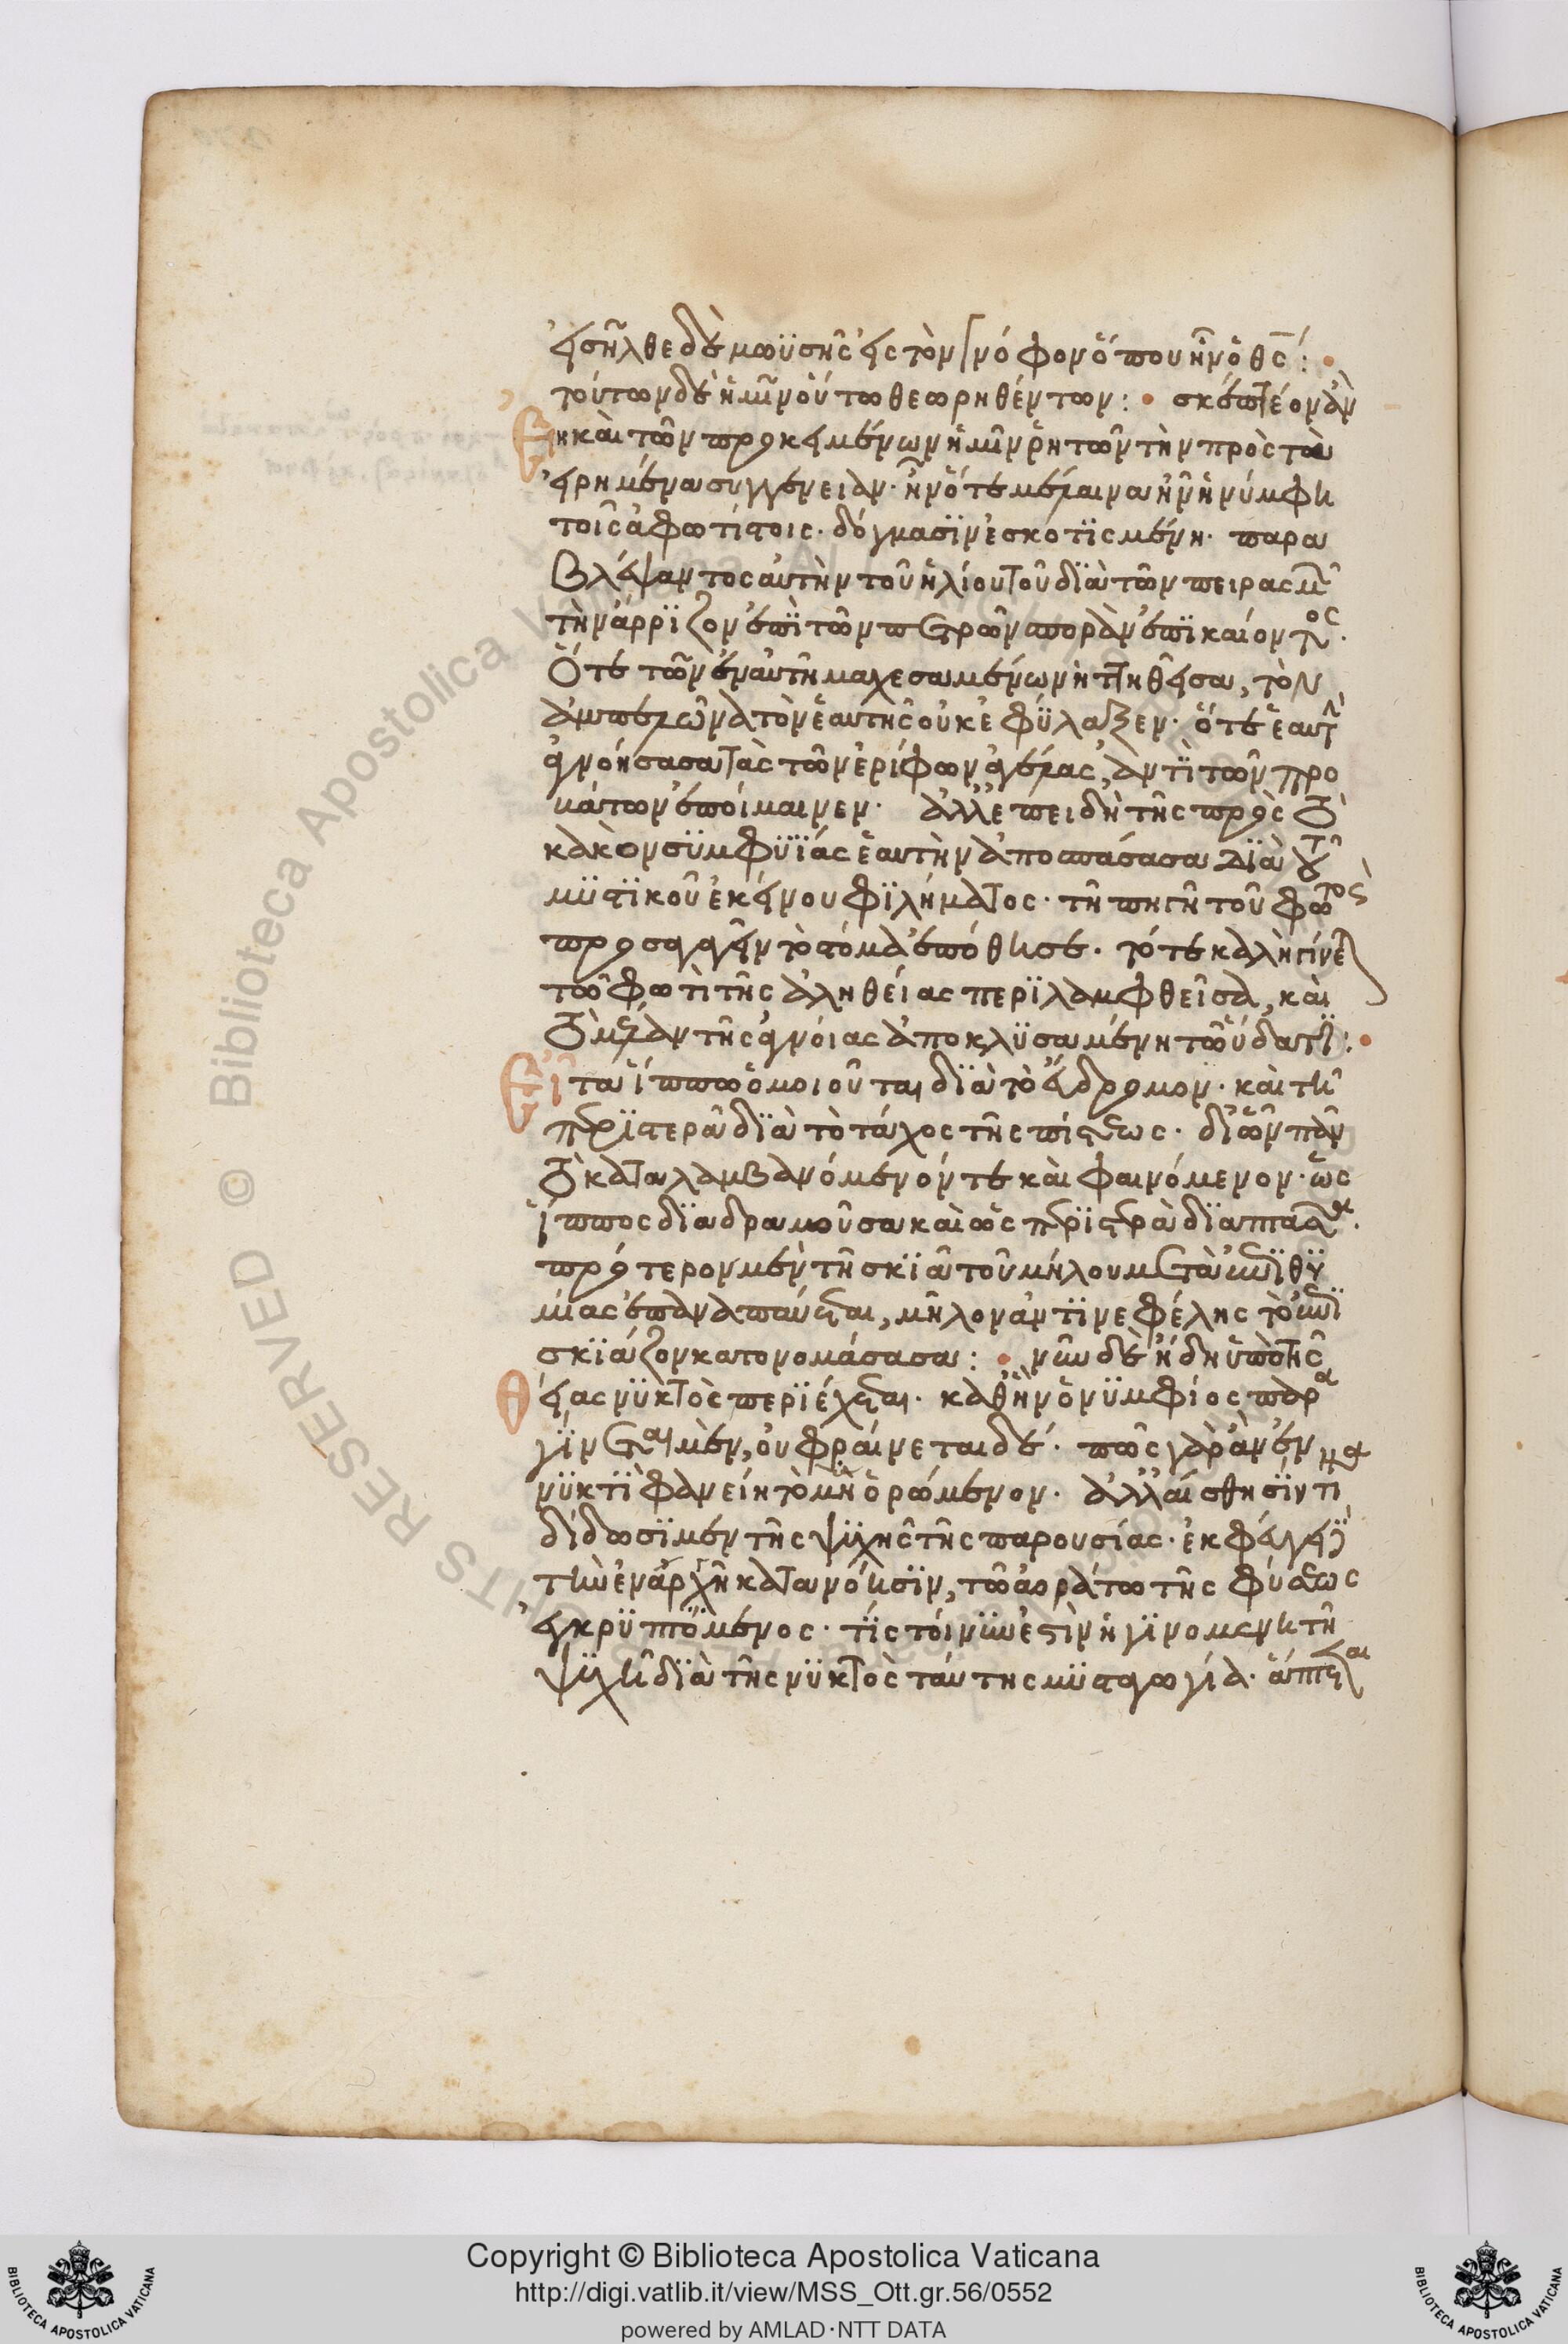 εἰσῆλθε δὲ μωϋσῆς εἰς τὸν γνόφον ὅπου ἦν ὁ θς:
τούτων δὲ ἡμῖν οὕτω θεωρηθέντων: σκεπτέον ἂν
Εἴη καὶ τῶν προκειμένων ἡμῖν ῥητῶν τὴν πρὸς τὰ
εἰρημένα συγγένειαν. ἦν ὅτε μέλαινα ἦν ἡ νύμφη
τοῖς ἀφωτίστοις δόγμασϊν ἐσκοτϊσμένη. παρα
βλέψαντος αὐτὴν τοῦ ἡλίου τοῦ δϊὰ τῶν πειρασμῶν
τὴν ἄρρϊζον ἐπϊ τῶν πετρῶν σπορὰν ἐπϊκαίοντος.
Ὅτε τῶν ἐν αὐτῇ μαχεσαμένων ἡττηθεῖσα, τὸν
ἀμπελῶνα τὸν ἑαυτῆς οὐκ ἐφύλαξεν. ὅτε ἑαυτὴν
ἀγνοήσασα τὰς τῶν ἐρίφων ἀγέλας, ἀντϊ τῶν προ
βάτων ἐποίμαινεν. ἀλλ' ἐπειδὴ τῆς πρὸς τὸ
κακὸν συμφυΐας ἑαυτὴν ἀποσπάσασα δϊὰ τοῦ
μυστϊκοῦ ἐκείνου φϊλήματος. τῇ πηγῇ τοῦ φωτὸς
προσαγαγεῖν τὸ στόμα ἐπόθησε. τότε καλὴ γίνεται
τῷ φωτὶ τῆς ἀληθείας περϊλαμφθεῖσα, καὶ
τὸ μέλαν τῆς ἀγνοίας ἀποκλυσαμένη τῷ ὕδατϊ:
Εἶτα ἵππῳ ὁμοιοῦται δϊὰ τὸ εὔδρομον. καὶ τῇ
περϊστερᾷ δϊὰ τὸ τάχος τῆς πίστεως. δι' ὧν πᾶν
τὸ καταλαμβανόμενόν τε καὶ φαινόμενον. ὡς
ἵππος δϊαδραμοῦσα καὶ ὡς περϊστερὰ δϊαπτᾶσα.
πρότερον μὲν τῇ σκϊᾷ τοῦ μήλου μετὰ ἐπϊθυ
μίας ἐπαναπαύεται, μῆλον ἀντϊ νεφέλης τὸ ἐπϊ
σκϊάζον κατονομάσασα: νῦν δὲ ἤδη ὑπὸ τῆς
Θείας νυκτὸς περϊέχεται. καθ' ἣν ὁ νυμφίος παρα
γϊνεται μὲν, οὐ φαίνεται δέ. πῶς γὰρ ἂν ἐν
νυκτϊ φανείη τὸ μὴ ὁρώμενον. ἀλλ' αἴσθησϊν τινα
δίδωσϊ μὲν τῆς ψυχῆς τῆς παρουσίας. ἐκφεύγει δὲ
τὴν ἐναργῆ κατανόησϊν, τῷ ἀοράτῳ τῆς φύσεως
ἐγκρυπτόμενος. τίς τοίνυν ἐστὶν ἡ γϊνομένη τῇ
ψυχῇ δϊὰ τῆς νυκτὸς ταύτης μυσταγωγία. ἅπτεται
Copyright © Biblioteca Apostolica Vaticana
http://digi.vatlib.it/view/MSS_Ott.gr.56/0552
powered by AMLAD·NTT DATA